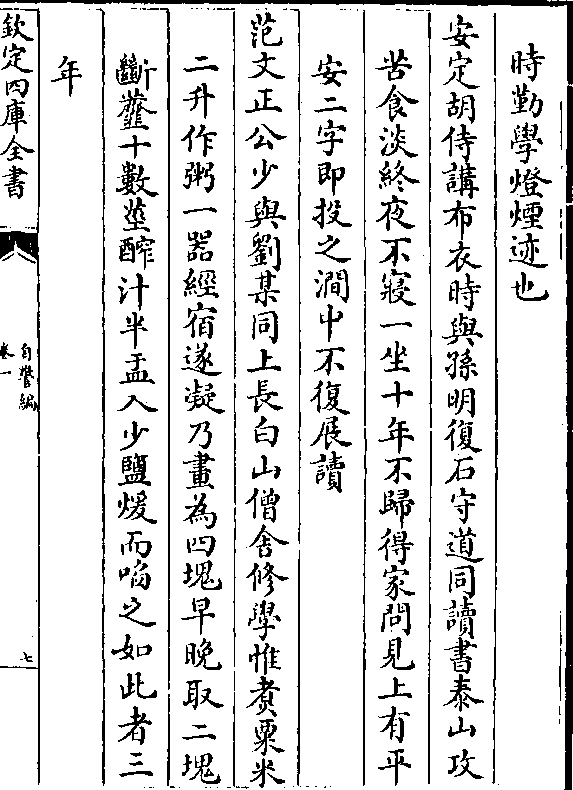 時勤學燈煙迹也
安定胡侍講布衣時與孫明復石守道同讀書泰山攻
苦食淡終夜不寢一坐十年不歸得家問見上有平
安二字即投之澗中不復展讀
范文正公少與劉某同上長白山僧舍修學惟煑粟米
二升作粥一器經宿遂凝乃畫為四塊早晚取二塊
斷虀十數莖酢汁半盂入少鹽煖而啗之如此者三
年
欽定四庫全書
自警編
卷一
七